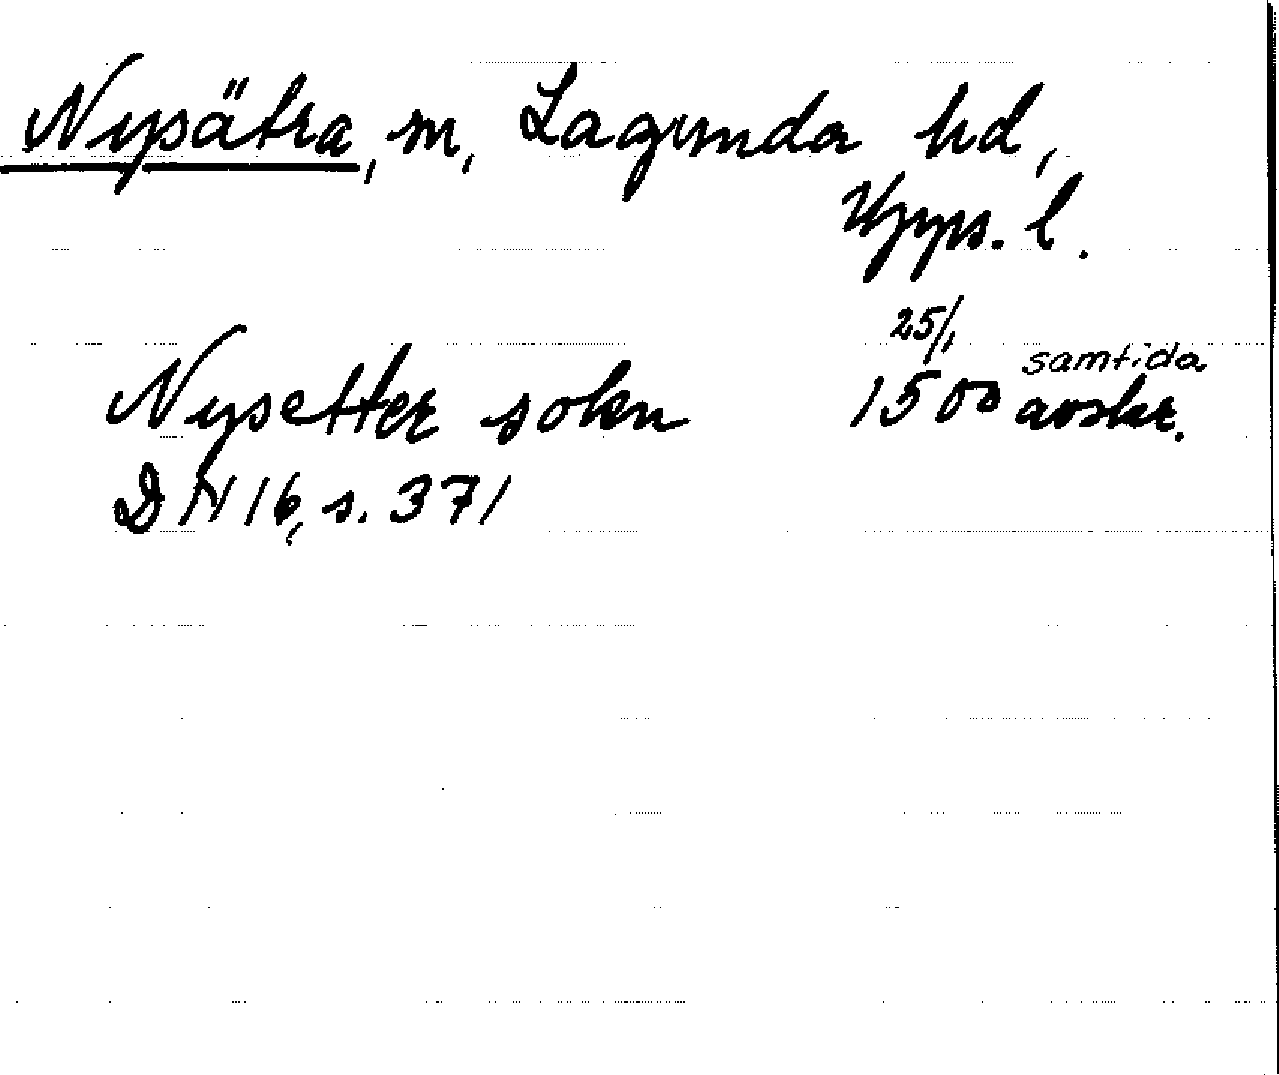 Nysätra, sn, Lagunda hd,
Upps. l.
25/1
Nysetter sokn 1500 samtida avskr.
DN 16, s. 371